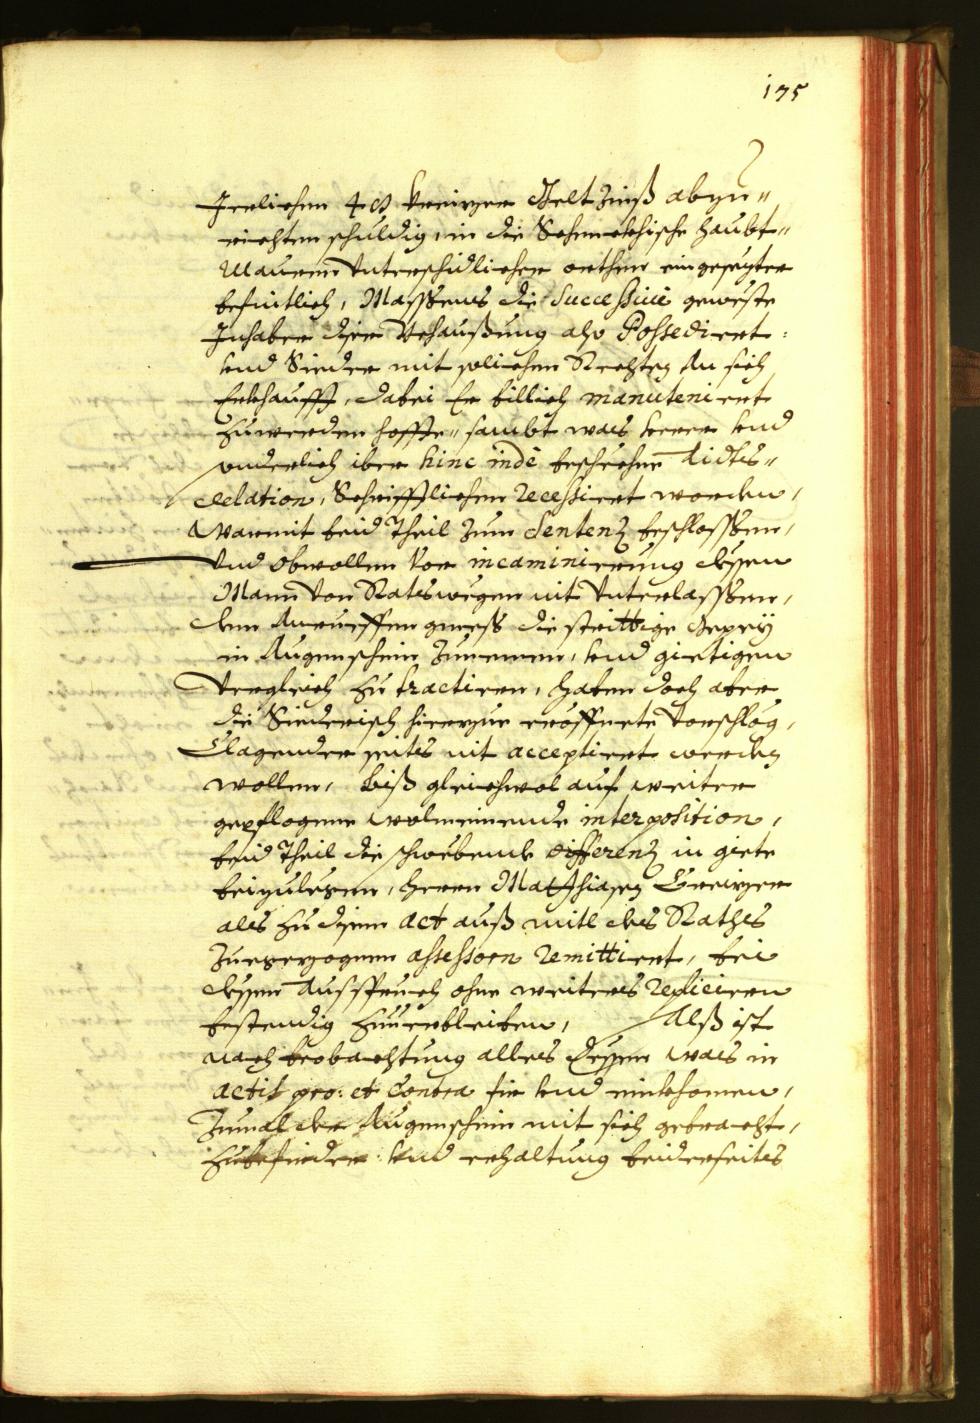 175
Jerlichen 4 Kreizer Gelt Zinß abzu"
richten schuldig, in die Schmekhische Haubt"
Mauren Vnterschidlichen orthen eingesezter
befintlich, Massens die Successiue geweste
Inhaber diser Behaußung also Possediert:
vnd Sieder mit solichen Rechten An sich
Erkhaufft, dabei Er billich manuteniert
zuwerden hoffte" sambt was ferer vnd
sonderlich iber hinc inde beschehene Aidts"
relation, Schrifftlichen recessiert worden,
Warmit beid Theil zum Sentenz beschlossen,
Vnd Obwollen Vor incaminierung dessen
Mann Von Ratswegen nit Vnterlassen,
dem Anrueffen gmess die strittige Gepey
in Augenschein Zunemen, vnd gietigen
Vergleich zu tractiren, haben doch aber
die Siederisch hierzue eröffnete Vorschlög,
Clagender seits nit acceptiert werden
wollen, biß gleichwol auf weiter
gepflogene wolmeinende interposition,
beid Theil die schwebende differenz in giete
beizulegen, Herrn Matthiasen Kreizer
als zu disem Act auß mitl des Rathes
Zuegezognen assessorn remittiert, bei
dessen Ausspruch ohne weiters repliciren
bestendig zuuerbleiben, Alß ist
nach beobachtung alles dessen was in
actis pro: et Contra fir vnd einkhomen,
Zumal der Augenschein mit sich gebracht,
zubefinden: vnd erhaltung beiderseits